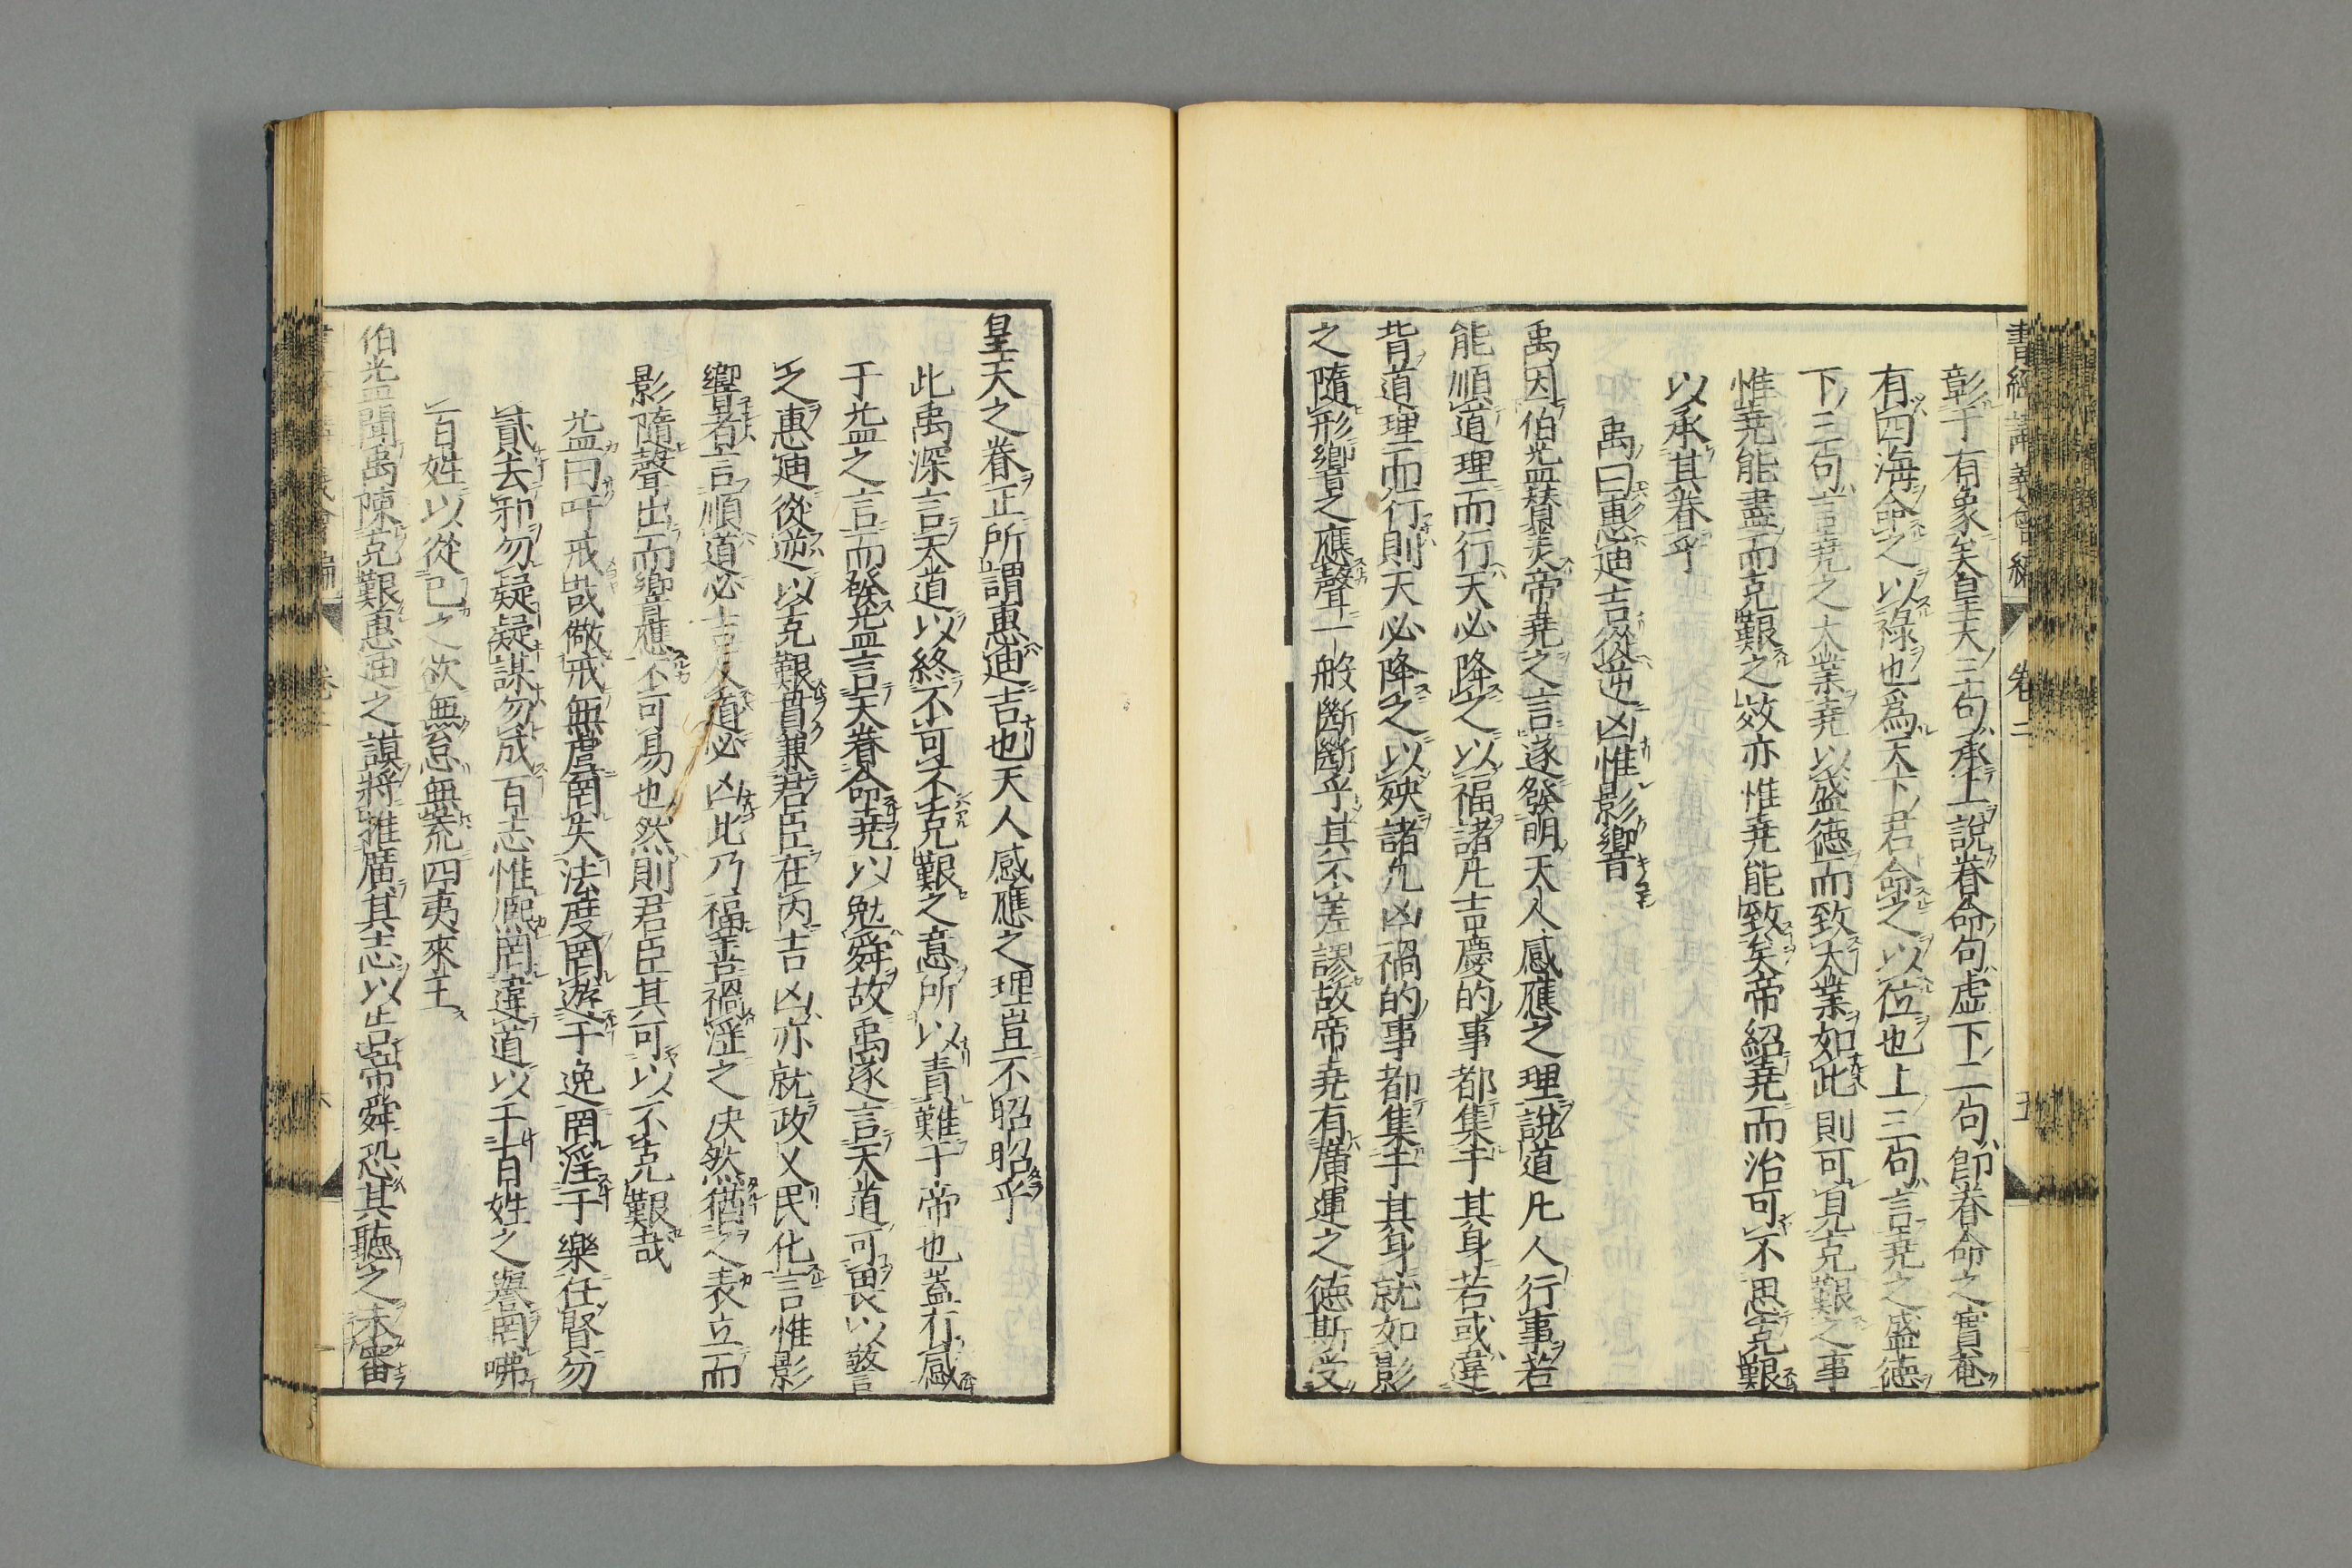 彰于有象矣皇天三句承上說眷命句虛下二句即眷命之實奄
有四海命之以祿也爲天下君命之以位也上三句言堯之盛德
下三句言堯之大業堯以盛德而致大業如此則可見克艱之事
惟堯能盡而克艱之效亦惟堯能致矣帝紹堯而治可不思克艱
以承其眷乎
禹曰惠迪吉從逆凶惟影響
禹因伯益贊美帝堯之言遂發明天人感應之理說道凡人行事若
能順道理而行天必降之以福諸凡吉慶的事都集于其身若或違
背道理而行則天必降之以殃諸凡凶禍的事都集于其身就如影
之隨形響之應聲一般斷斷乎其不差謬故帝堯有廣運之德斯受
皇天之眷正所謂惠迪吉也天人感應之理豈不昭昭乎
此禹深言天道以終不可不克艱之意所以責難于帝也蓋有感
于益之言而發益言天眷命堯以勉舜故禹遂言天道可畏以警
之惠迪從逆以克艱貫兼君臣在內吉凶亦就政乂民化言惟影
響者言順道必吉反道必凶此乃福善禍淫之決然猶之表立而
影隨聲出而響應不可易也然則君臣其可以不克艱哉
益曰吁戒哉儆戒無虞罔失法度罔遊于逸罔淫于樂任賢勿
貳去邪勿疑疑謀勿成百志惟熙罔違道以干百姓之譽罔咈
百姓以從己之欲無怠無荒四夷來王
伯益聞禹陳克艱惠迪之謨將推廣其志以告帝舜恐其聽之未審
書經講義會編 卷二 五